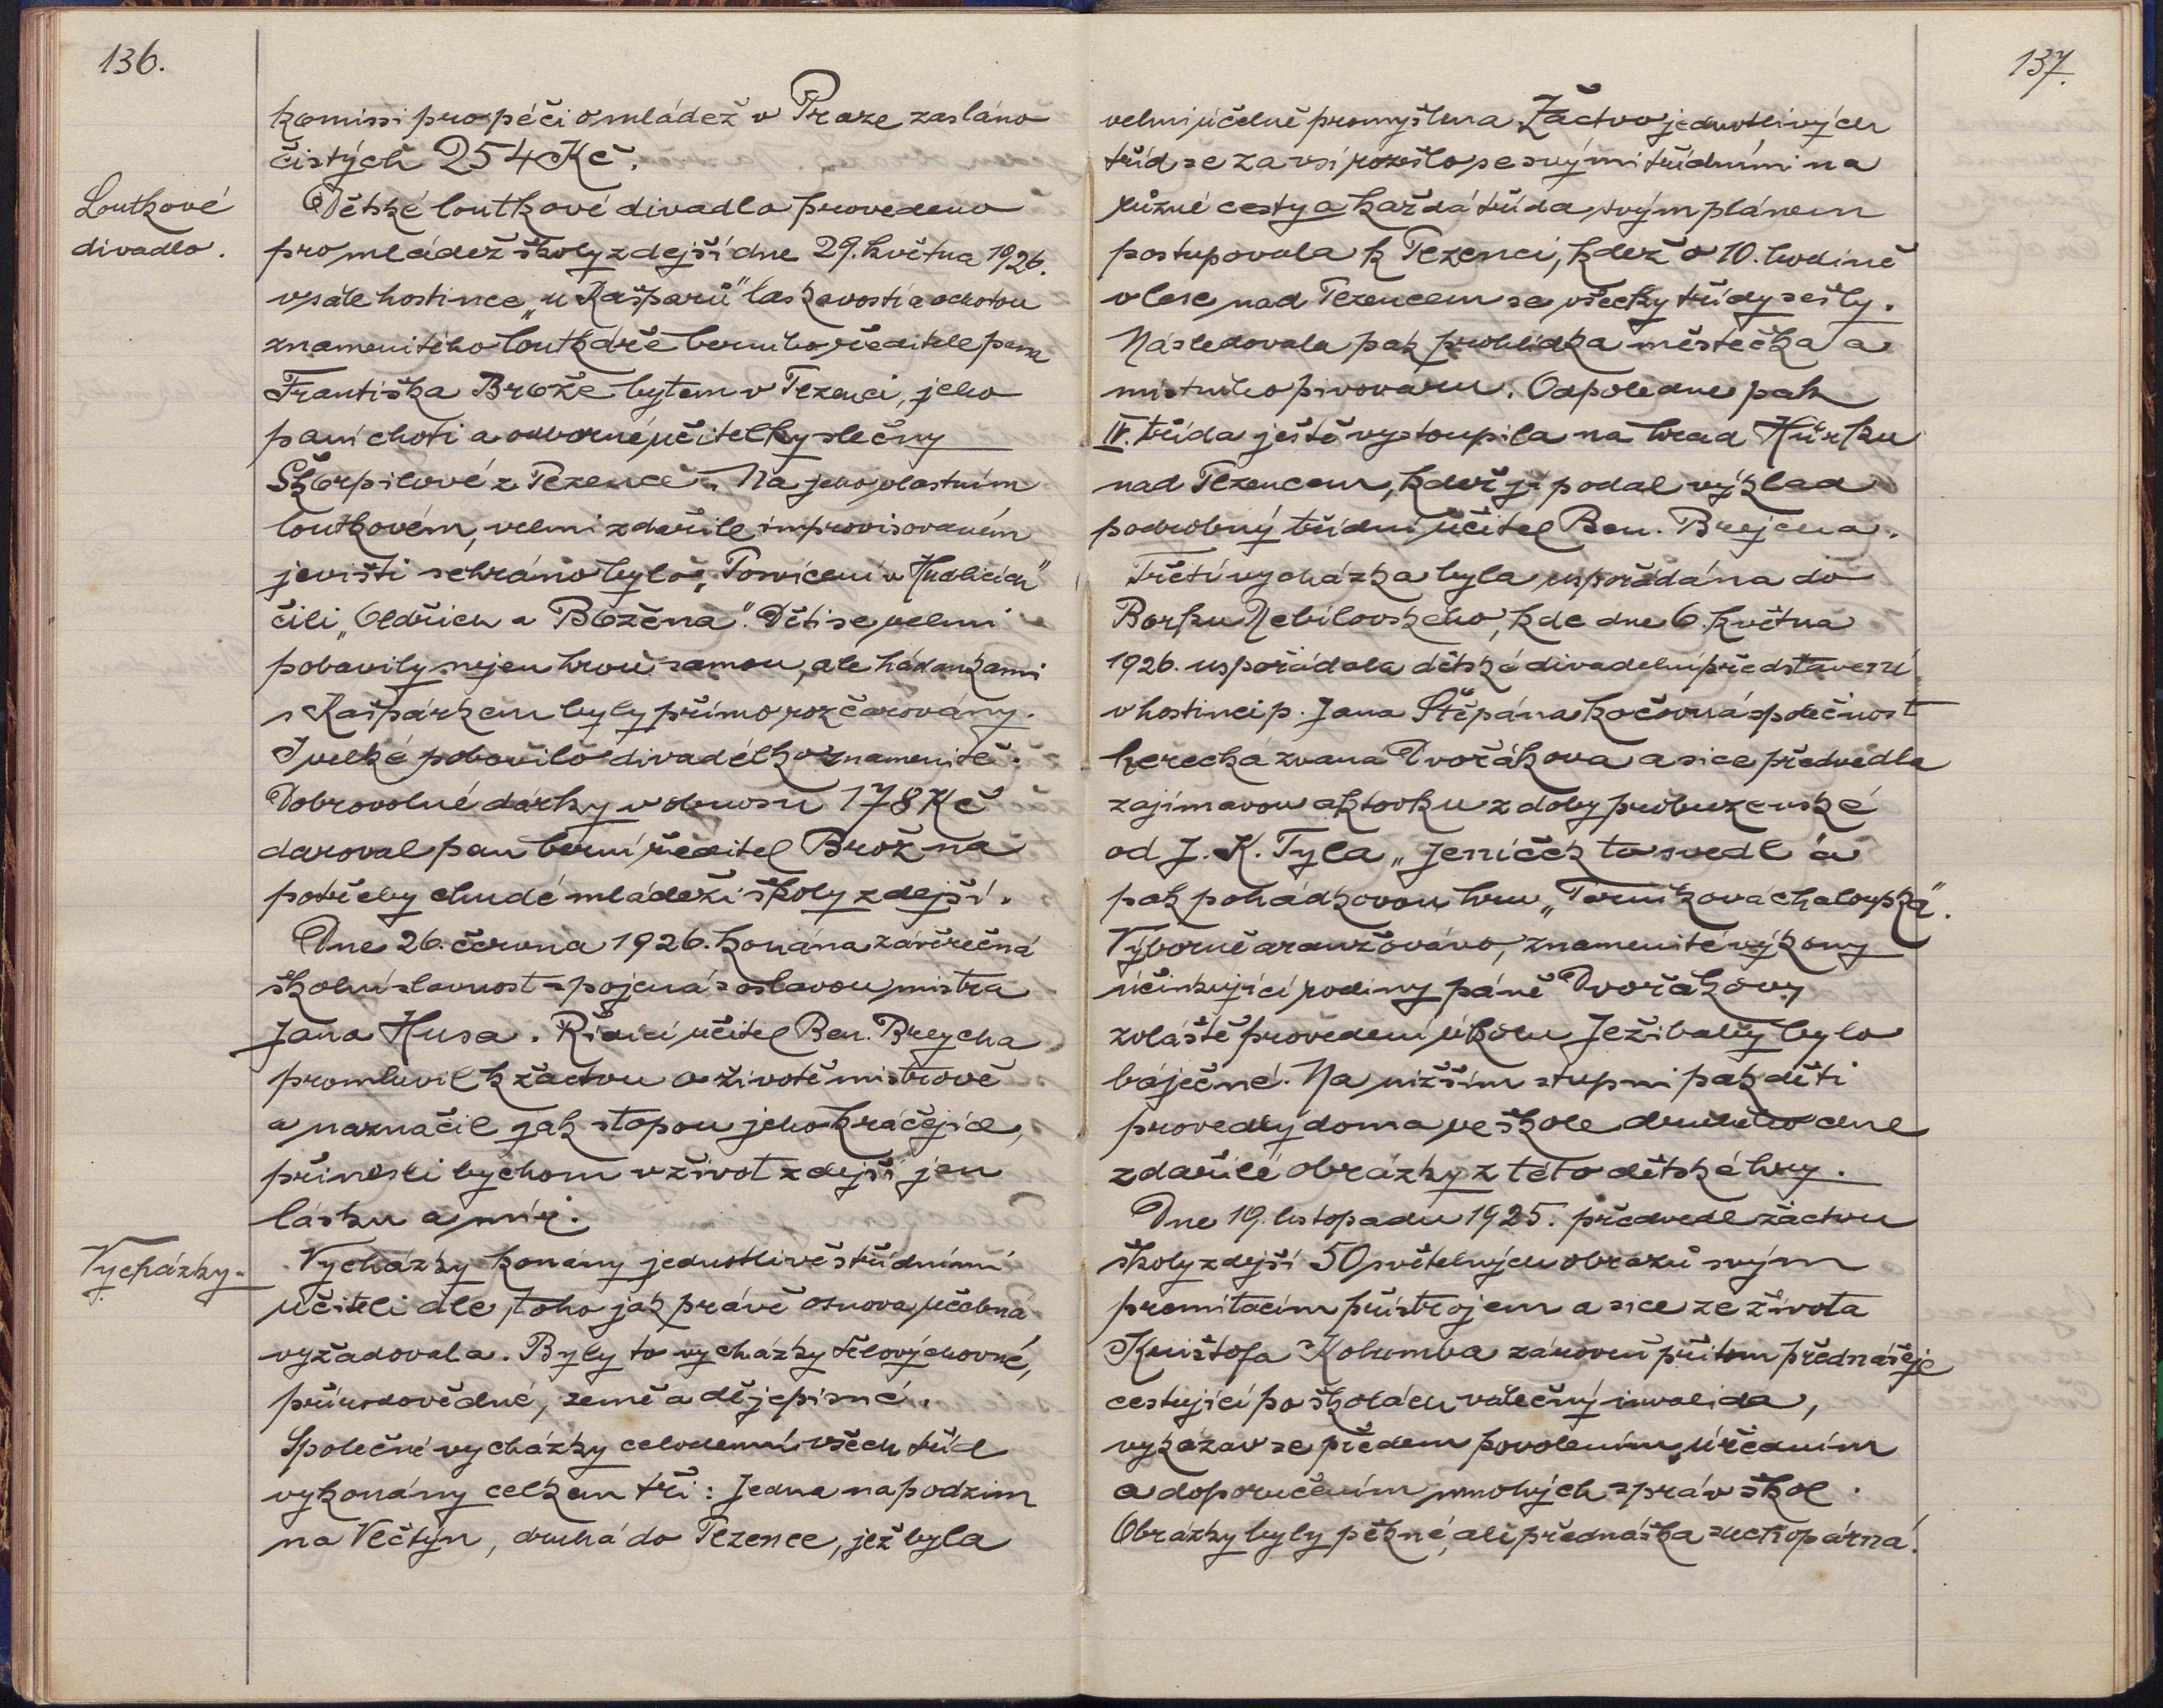 136.
komissi pro péči o mládež v Praze zasláno
čistých 254 Kč.
Loutkové
divadlo.
Dětské loutkové divadlo provedeno
pro mládež školy zdejší dne 29. května 1926.
v sále hostince „u Kašparů" laskavostí a ochotou
znamenitého loutkáře berního ředitele pana
Františka Brože bytem v Plzenci, jeho
paní choti a odborné učitelky slečny
Škorpilové z Plzence. Na jeho vlastním
loutkovém, velmi zdařile improvisovaném
jevišti sehráno bylo: „Posvícení v Hudlicích"
čili „Oldřich a Božena". Děti se velmi
pobavily nejen hrou samou, ale hádankami
s Kašpárkem byly přímo rozčarovány.
I velké pobavilo divadélko znamenitě.
Dobrovolné dárky v obnosu 178 Kč
daroval pan berní ředitel Brož na
potřeby chudé mládeži školy zdejší.
Dne 26. června 1926. konána závěrečná
školní slavnost spojená s oslavou mistra
Jana Husa. Řídící učitel Ben. Brejcha
promluvil k žactvu o životě mistrově
a naznačil jak stopou jeho kráčejíce,
přinesli bychom v život zdejší jen
lásku a mír.
Vycházky.
Vycházky konány jednotlivě s třídními
učiteli dle toho jak právě osnova učebná
vyžadovala. Byly to vycházky tělovýchovné,
přírodovědné, země a dějepisné.
Společné vycházky celodenní všech tříd
vykonány celkem tři: Jedna na podzim
na Vlčtýn, druhá do Plzence, jež byla
137.
velmi účelně promyšlena. Žactvo jednotlivých
tříd se za vsí rozešlo se svými třídními na
různé cesty a každá třída svým plánem
postupovala k Plzenci, kdež o 10. hodině
v lese nad Plzencem se všecky třídy sešly.
Následovala pak prohlídka městečka a
místního pivovaru. Odpoledne pak
IV. třída ještě vystoupila na hrad Hůrku
nad Plzencem, kdež jí podal výklad
podrobný třídní učitel Ben. Brejcha.
Třetí vycházka byla uspořádána do
Borku Nebílovského, kde dne 6. května
1926. uspořádala dětské divadelní představení
v hostinci p. Jana Štěpána kočovná společnost
herecká zvaná Dvořákova a sice předvedla
zajímavou aktovku z doby probuzenské
od J. K. Tyla „Jeníček to svedl" a
pak pohádkovou hru „Perníková chaloupka".
Výborně aranžováno, znamenité výkony
účinkující rodiny páně Dvořákovy
zvláště provedení úkolu Ježibaby bylo
báječné. Na nižším stupni pak děti
provedly doma ve škole druhého dne
zdařilé obrázky z této dětské hry.
Dne 19. listopadu 1925. předvedl žactvu
školy zdejší 50 světelných obrazů svým
promítacím přístrojem a sice ze života
Krištofa Kolumba zároveň přitom přednášeje
cestující po školách válečný invalida,
vykázav se předem povolením úředním
a doporučením mnohých správ škol.
Obrázky byly pěkné, ale přednáška suchopárná.